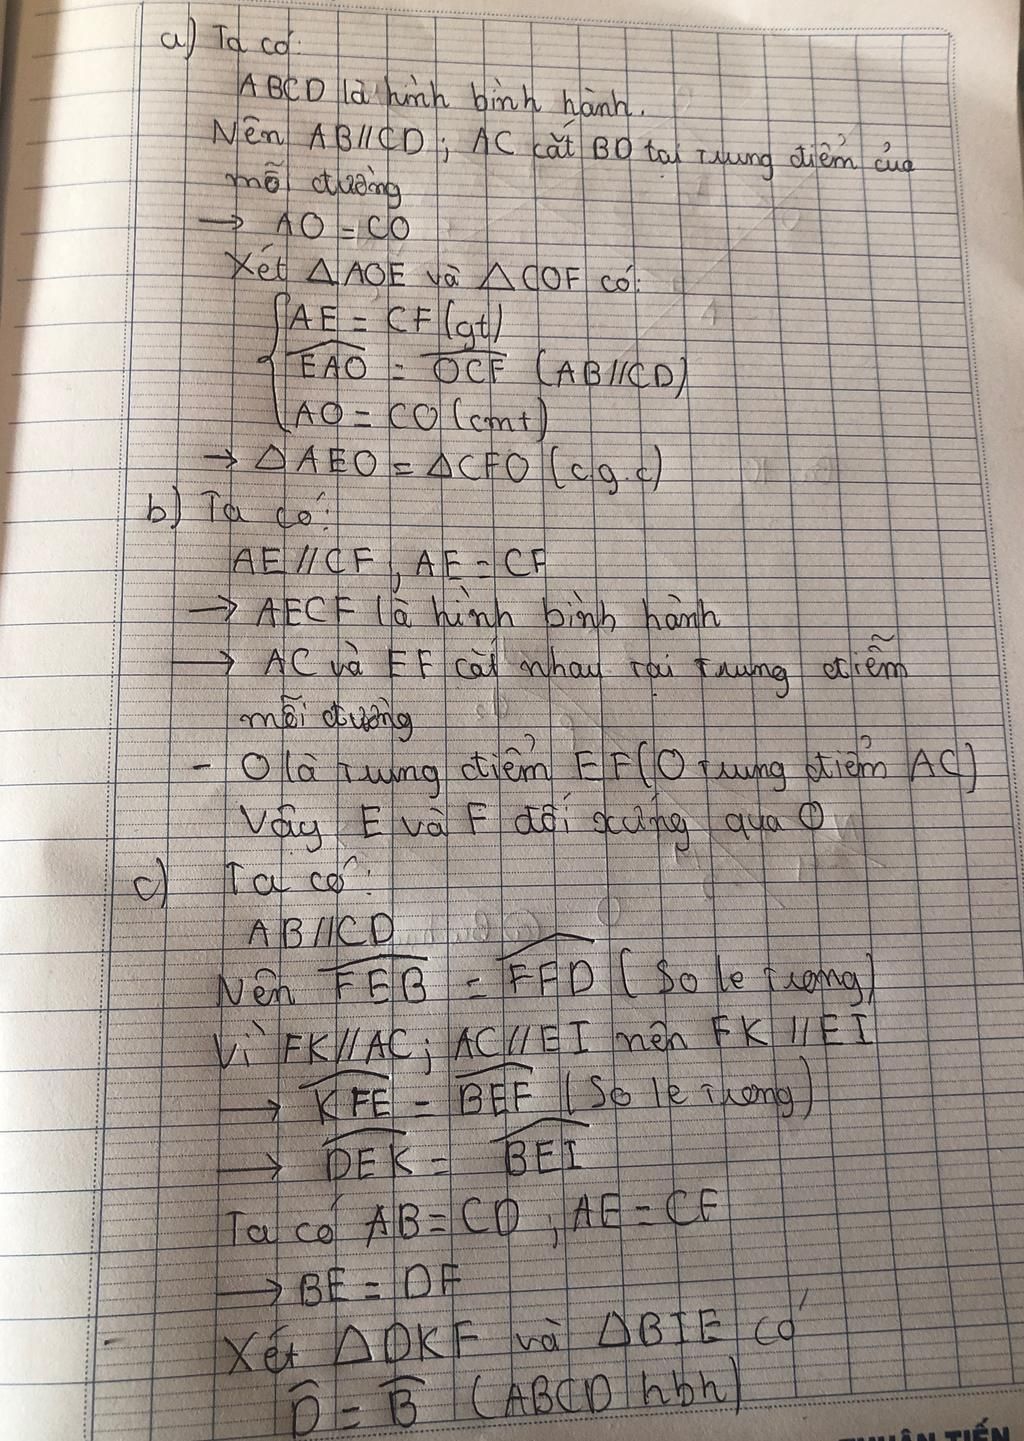 a) Ta có:
ABCD là hình bình hành.
Nên AB//CD; AC cắt BD tại trung điểm của
mỗi đường
→ AO = CO
Xét △AOE và △COF có:
AE = CF (gt)
EAO = OCF (AB//CD)
AO = CO (cmt)
→ △AEO = △CFO (c.g.c)
b) Ta có:
AE // CF, AE = CF
→ AECF là hình bình hành
→ AC và EF cắt nhau tại trung điểm
mỗi đường
- O là trung điểm EF (O trung điểm AC)
Vậy E và F đối xứng qua O
c) Ta có:
AB//CD
Nên FEB = EFD (So le trong)
Vì FK//AC; AC//EI nên FK//EI
→ KFE = BEF (So le trong)
→ DEK = BEI
Ta có AB = CD, AE = CF
→ BE = DF
- Xét △DKF và △BIE có
D = B (ABCD hbh)
THUẬN TIẾN